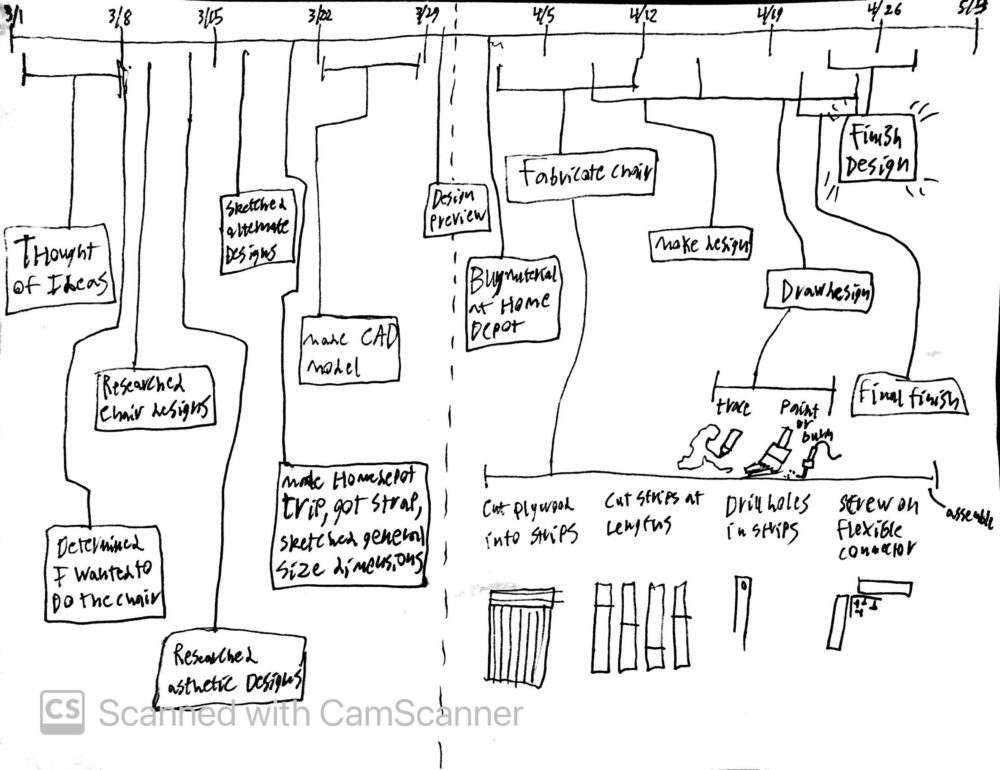 3/1 3/8 3/15 3/22 3/29 4/5 4/12 4/19 4/26
Thought
of Ideas
Determined
I wanted to
Do the chair
Researched
chair designs
Researched
asthetic Designs
Sketched
alternate
Designs
made Homedepot
trip, got strap,
sketched general
size dimensions
made CAD
model
Design
preview
Buy material
at Home
DEPOT
Fabricate chair
make design
Draw design
trace
Paint
or
burn
Finish
Design
Final finish
Cut plywood
into strips
Cut strips at
lengths
Drill holes
in strips
Screw on
flexible
connector
assemble
CS Scanned with CamScanner